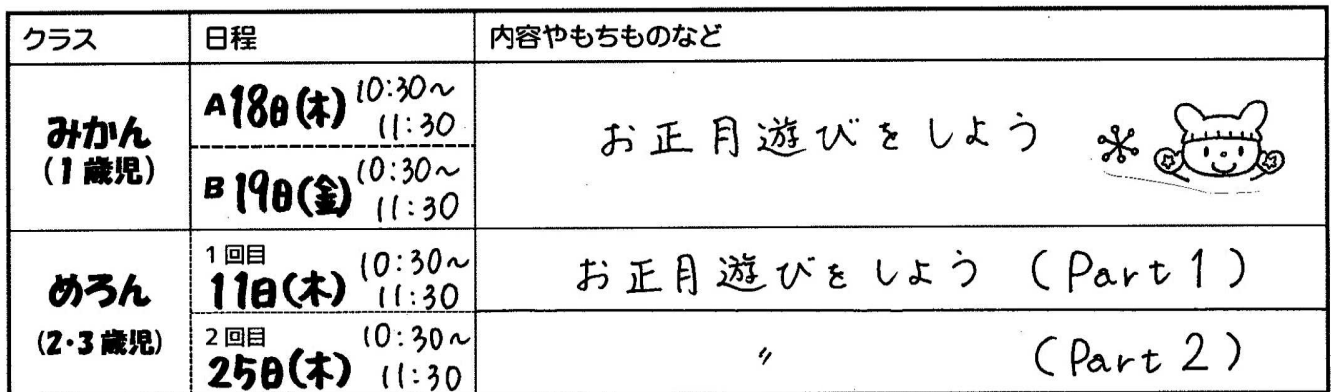 クラス 日程 内容やもちものなど
みかん
(1歳児)
A 18日(木) 10:30~
11:30
B 19日(金) 10:30~
11:30
お正月遊びをしよう
めろん
(2・3歳児)
1回目
11日(木) 10:30~
11:30
お正月遊びをしよう (Part 1)
2回目
25日(木) 10:30~
11:30
〃 (Part 2)